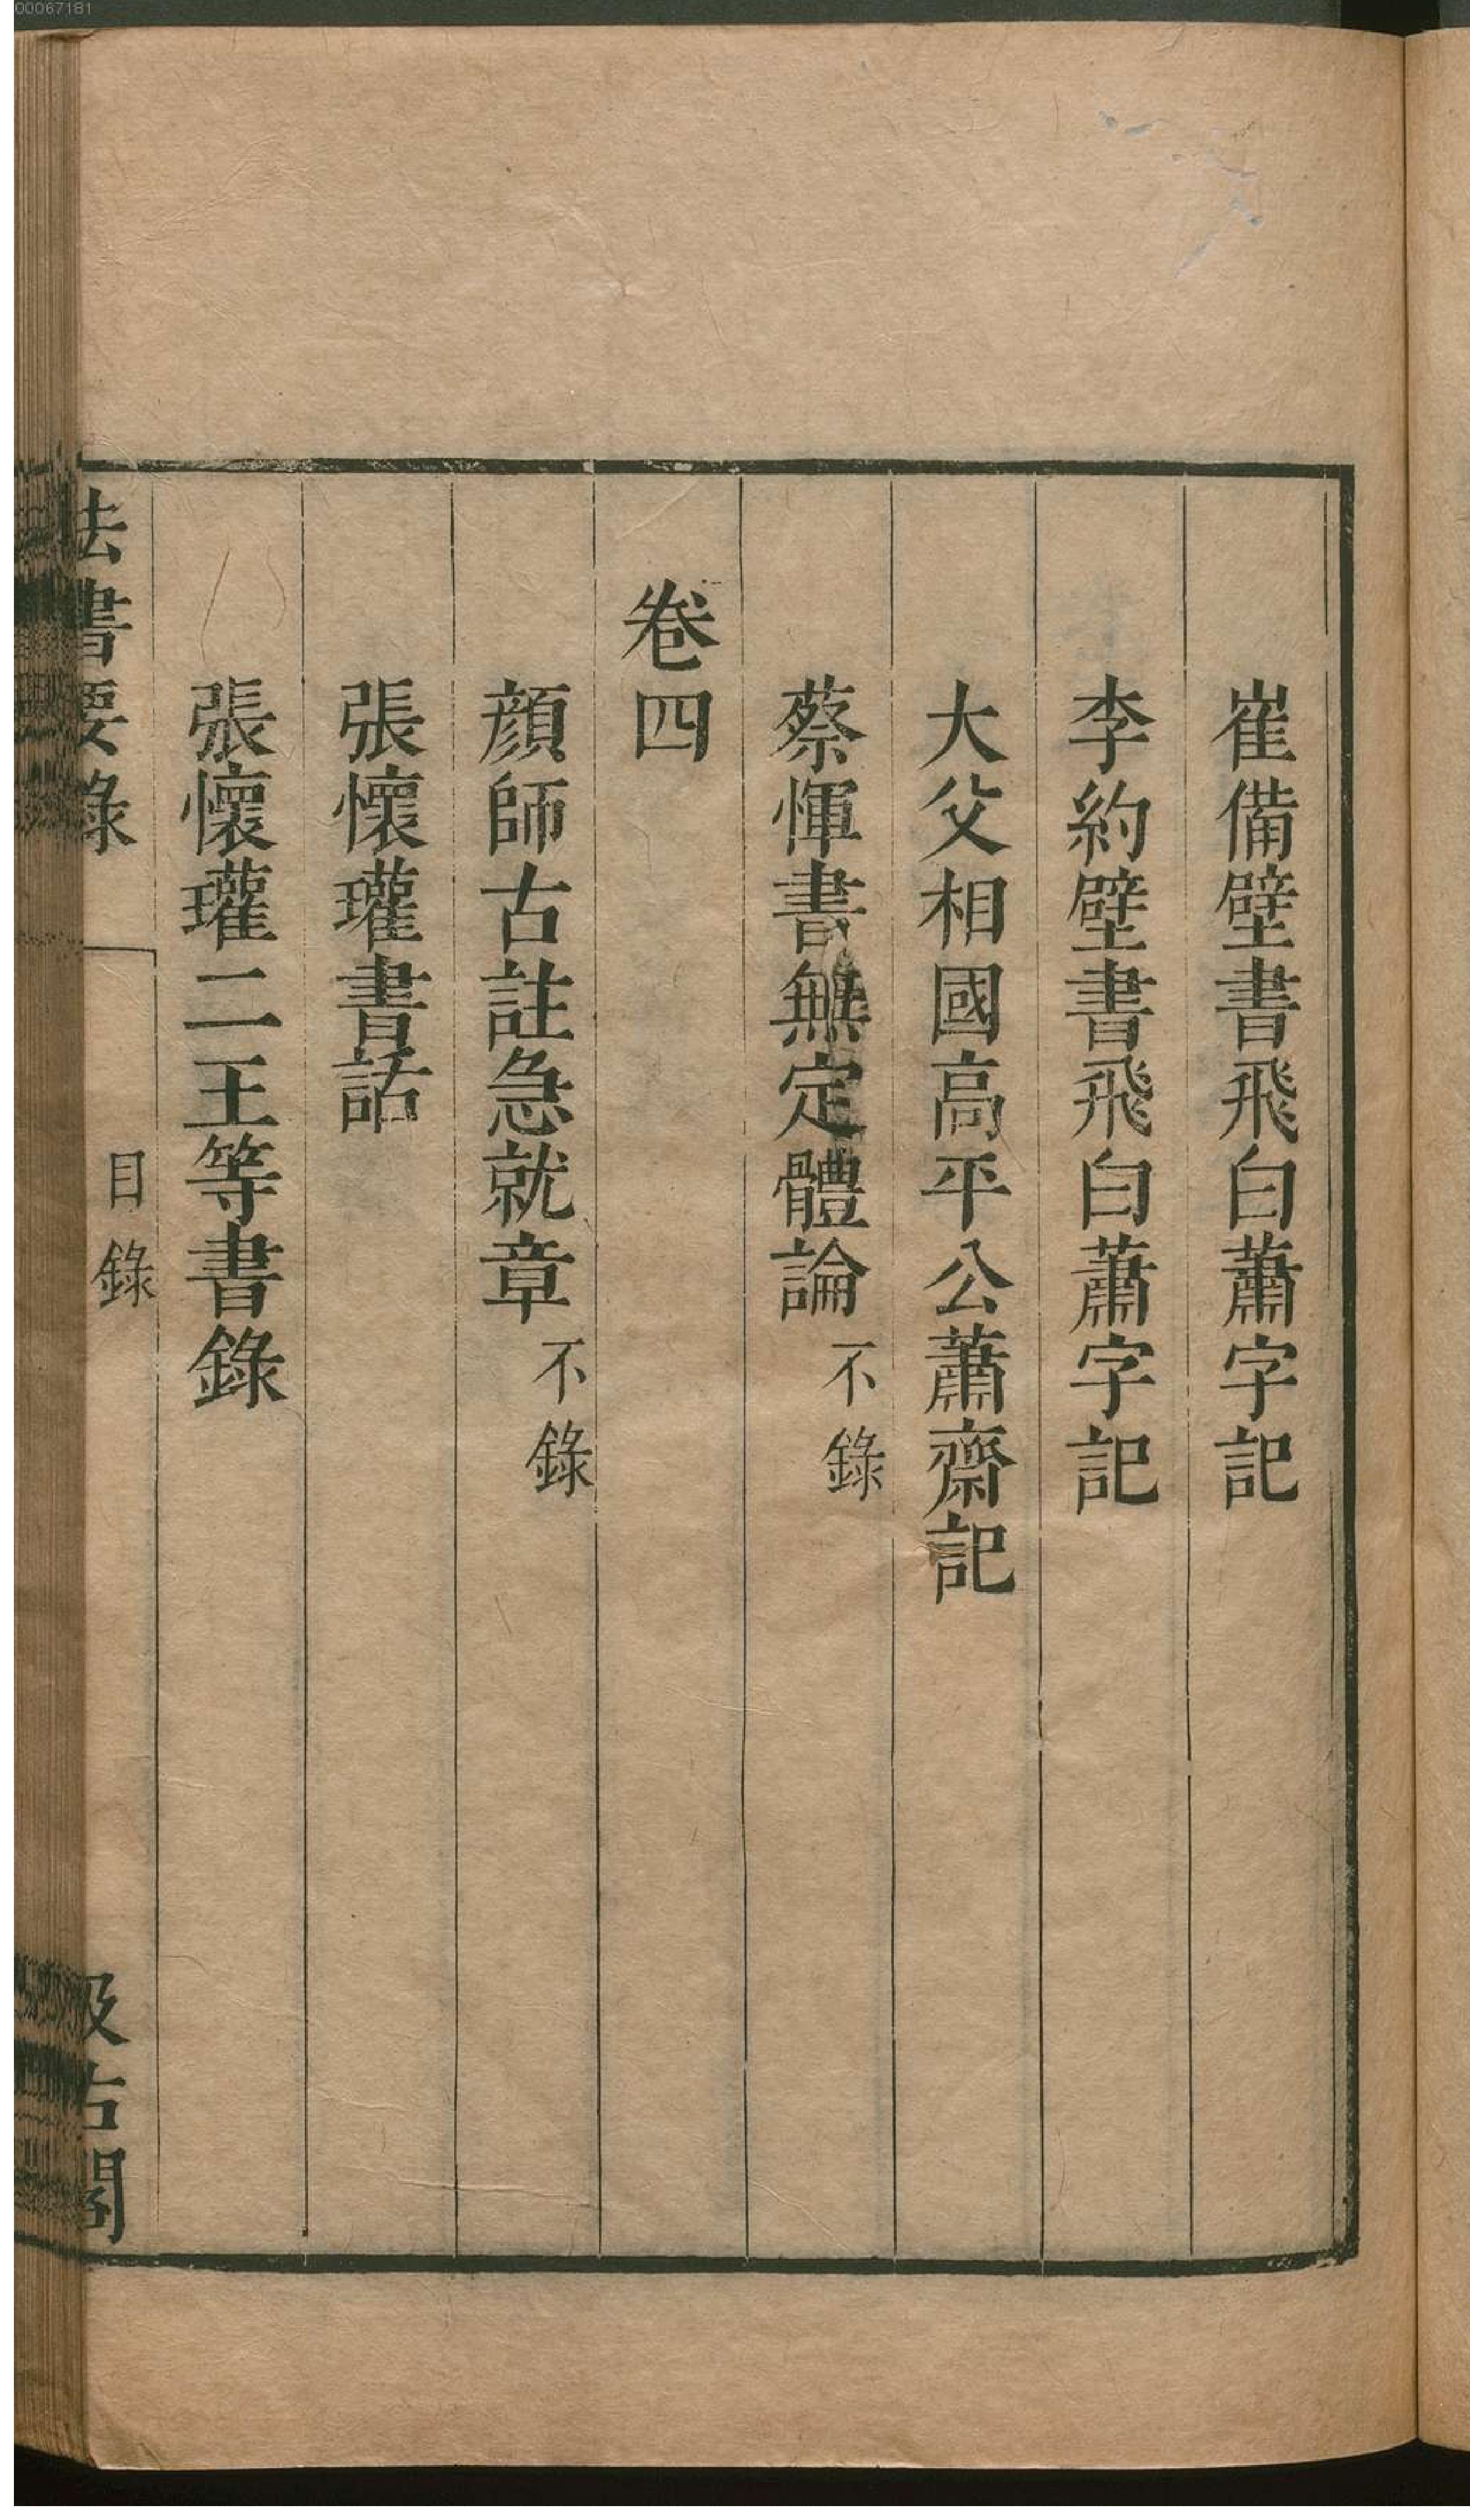 00067181
崔備壁書飛白蕭字記
李約壁書飛白蕭字記
大父相國高平公蕭齋記
蔡惲書無定體論 不錄
卷四
顔師古註急就章 不錄
張懷瓘書話
張懷瓘二王等書錄
法書要錄 目錄 汲古閣